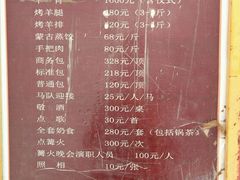 烤羊腿 280元（3-4斤）
烤羊排 280元（3-4斤）
蒙古蒸饺 68元/斤
手把肉 80元/斤
商务包 328元/顶
标准包 218元/顶
普通包 120元/顶
马队迎接 25元/人/马
敬酒 300元/桌
点歌 30元/首
全套奶食 280元/套（包括锅茶）
点篝火 300元/次
篝火晚会演职人员 100元/人
照相 10元/张